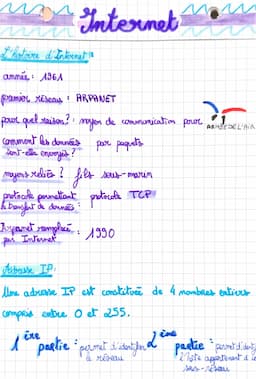 Internet
L'histoire d'Internet :
année : 1961
premier réseau : ARPANET
pour quel raison ? : moyen de communication pour
ARMÉE DE L'AIR
comment les données par paquets
sont-elle envoyés ?
moyens reliés ? fils sous-marin
protocole permettant protocole TCP
le transfert de données :
Arpanet remplacé : 1990
par Internet
Adresse IP :
Une adresse IP est constituée de 4 nombres entiers
compris entre 0 et 255.
1ère partie : permet d'identifier 2ème partie : permet d'identi
le réseau appartenant à
sous-réseau